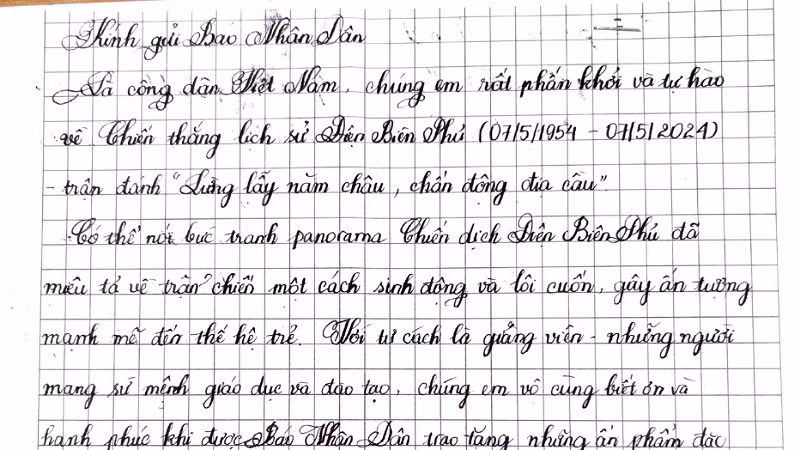 Kính gửi Báo Nhân Dân
Là công dân Việt Nam, chúng em rất phấn khởi và tự hào
về Chiến thắng lịch sử Điện Biên Phủ (07/5/1954 - 07/5/2024)
- trận đánh "Lừng lẫy năm châu, chấn động địa cầu".
Có thể nói bức tranh panorama Chiến dịch Điện Biên Phủ đã
miêu tả về trận chiến một cách sinh động và lôi cuốn, gây ấn tượng
mạnh mẽ đến thế hệ trẻ. Với tư cách là giảng viên - những người
mang sứ mệnh giáo dục và đào tạo, chúng em vô cùng biết ơn và
hạnh phúc khi được Báo Nhân Dân trao tặng những ấn phẩm đặc